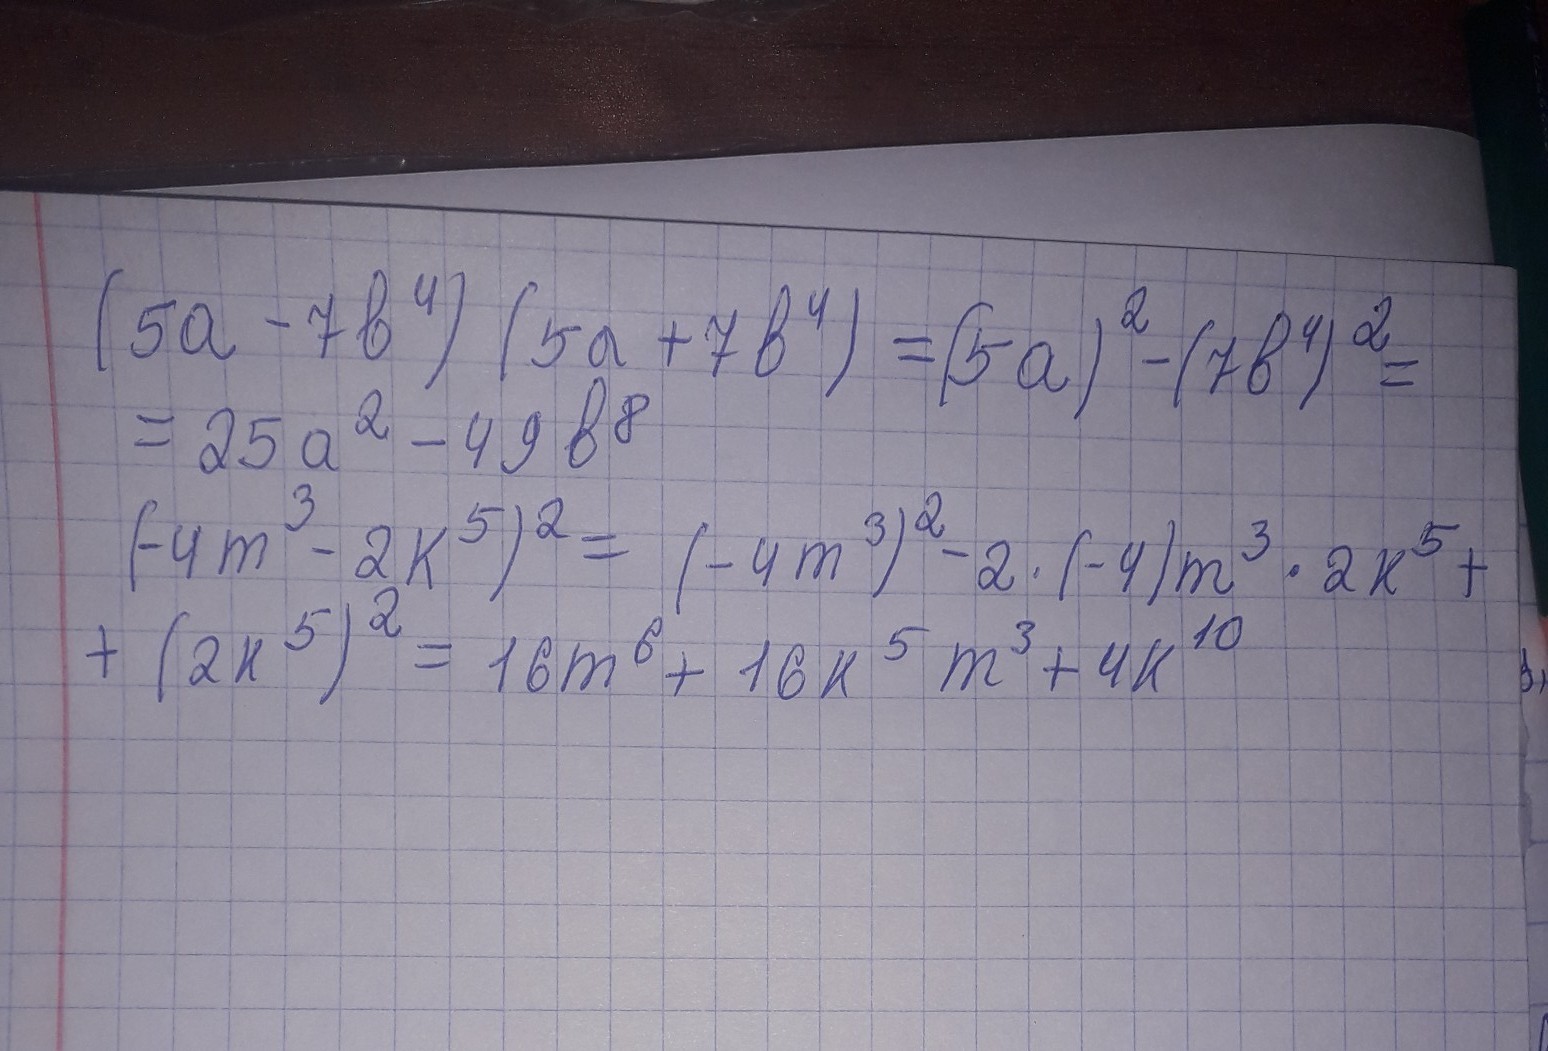 (5a - 7b⁴) (5a + 7b⁴) = (5a)² - (7b⁴)² =
= 25a² - 49b⁸
(-4m³ - 2k⁵)² = (-4m³)² - 2 · (-4)m³ · 2k⁵ +
+ (2k⁵)² = 16m⁶ + 16k⁵m³ + 4k¹⁰